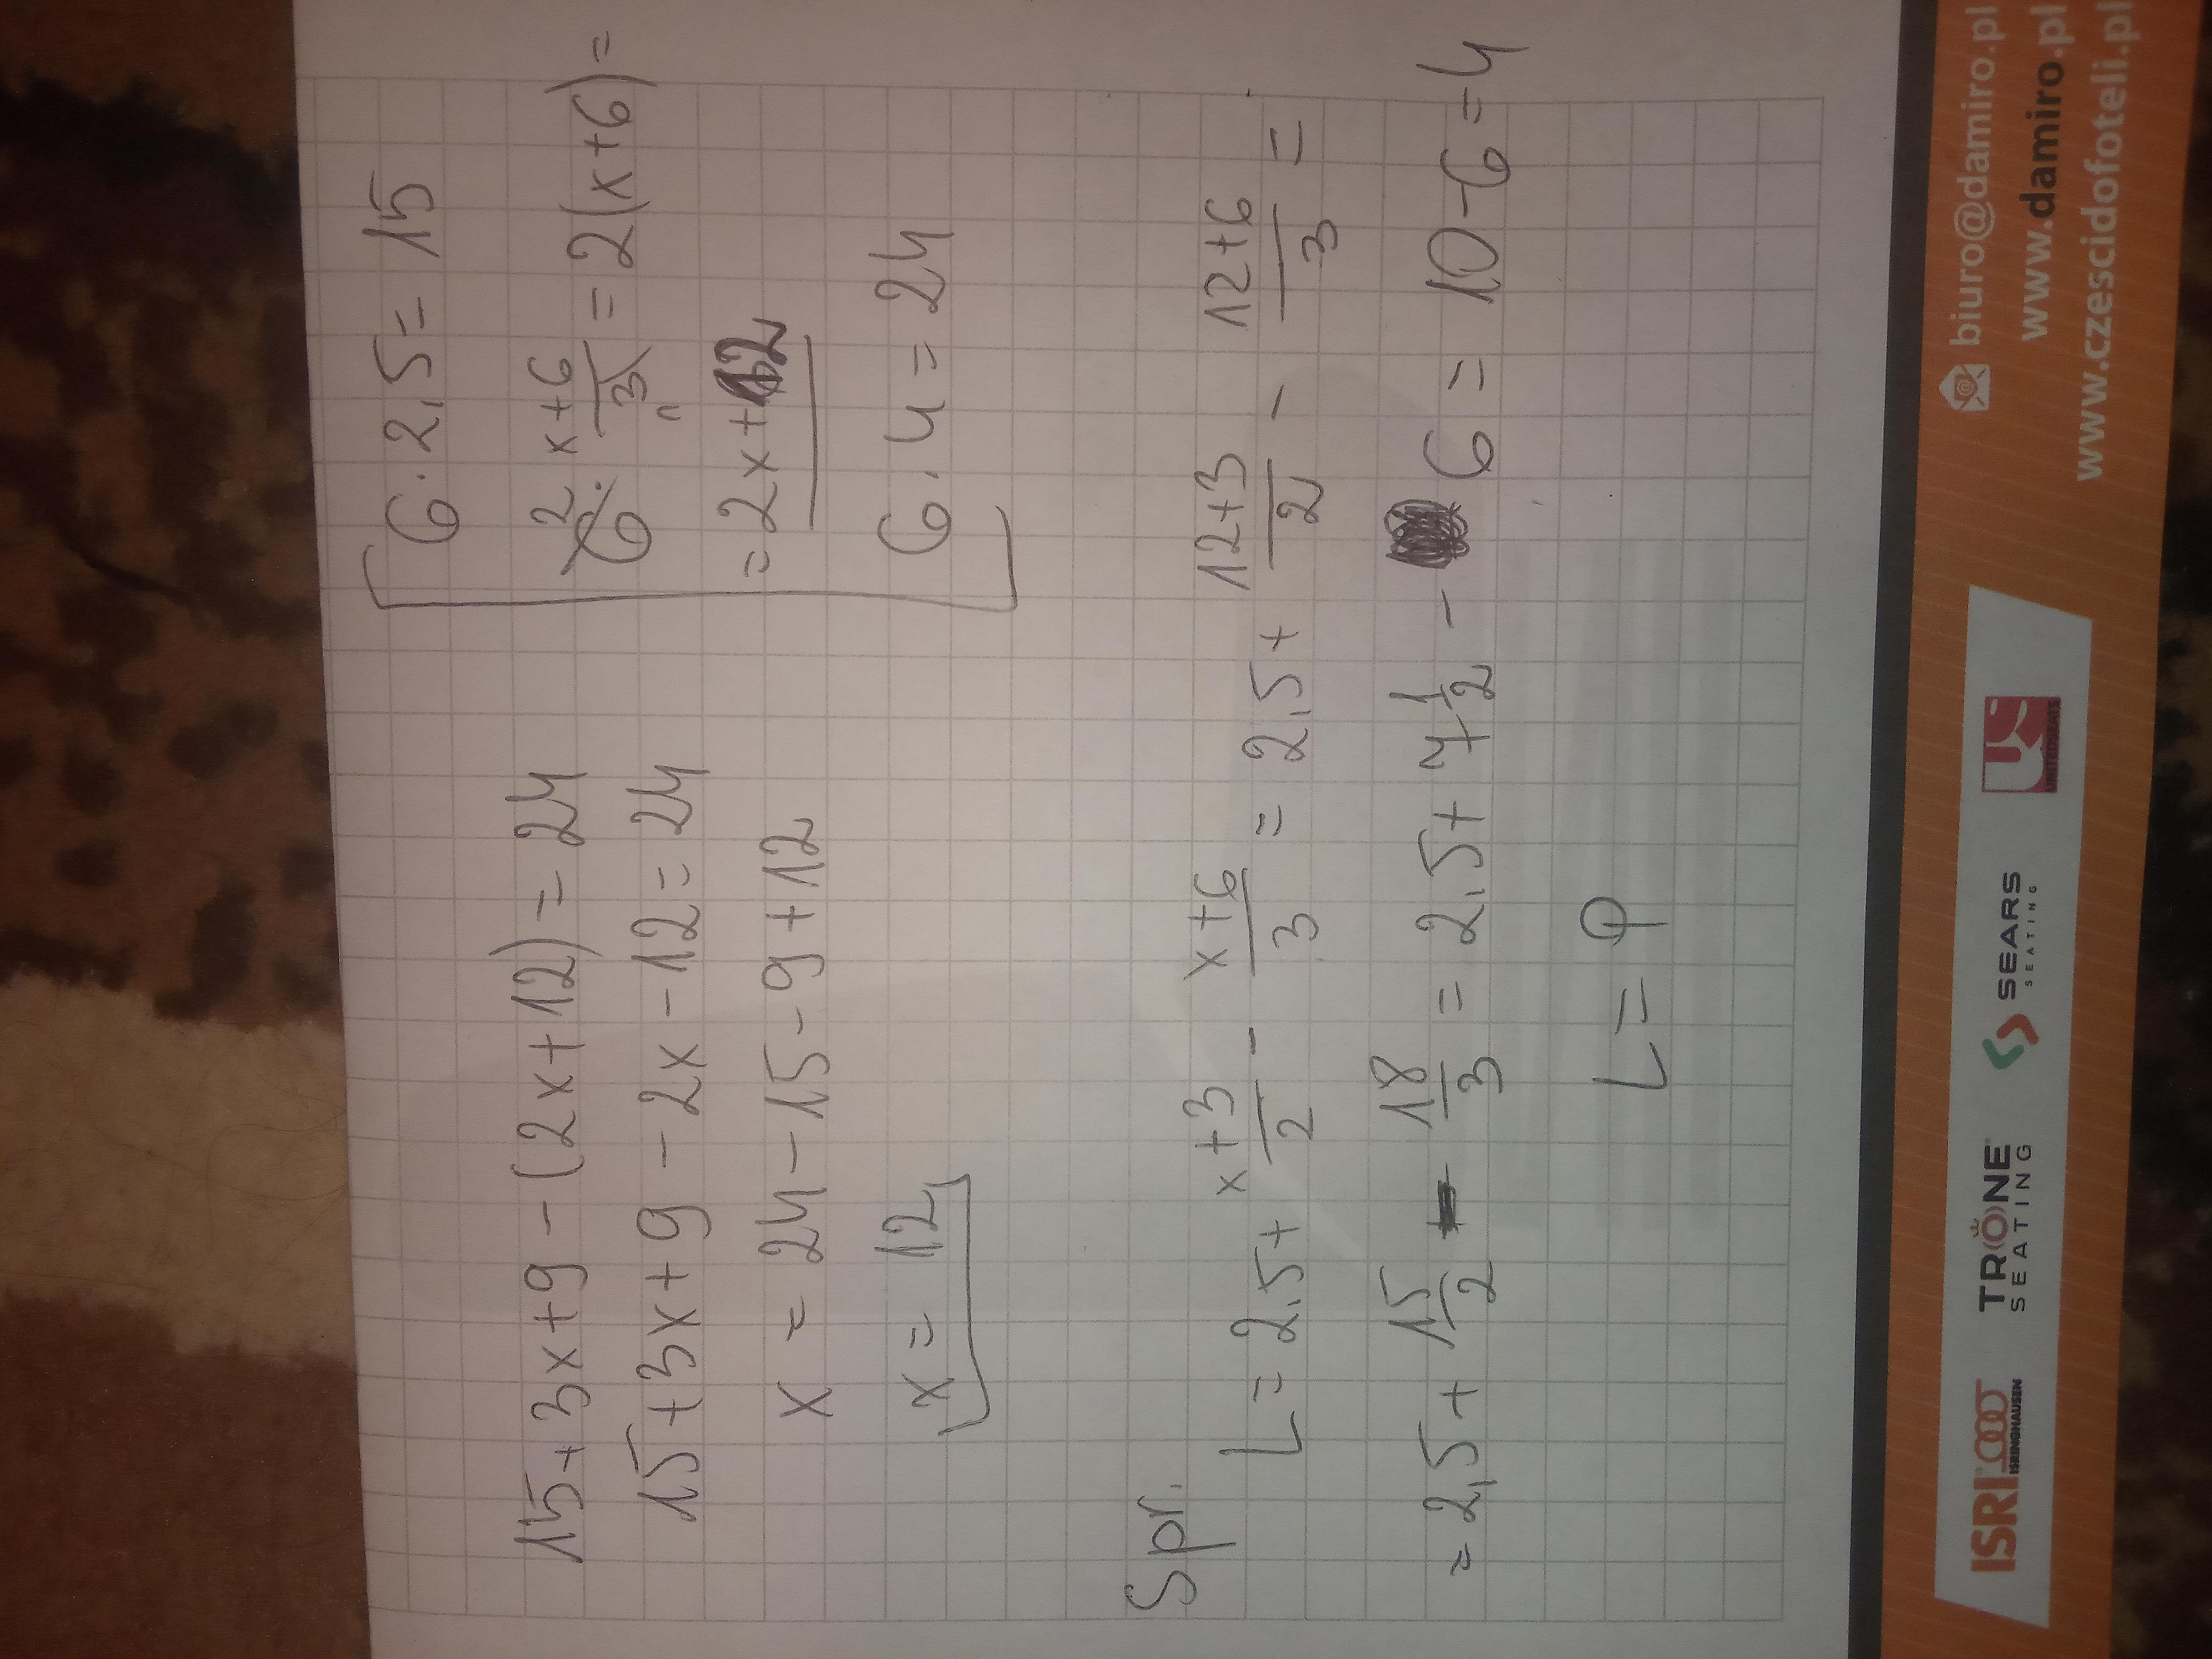 6·2,5=15
6 2·(x+6)/3 1=2(x+6)=
=2x+12
6·4=24
15+3x+9-(2x+12)=24
15+3x+9-2x-12=24
x=24-15-9+12
x=12
Spr.
L=2,5+(x+3)/2-(x+6)/3=2,5+(12+3)/2-(12+6)/3=
=2,5+15/2-18/3=2,5+7 1/2-6=10-6=4
L=P
ISRI
ISRINGHAUSEN
TRONE
SEATING
SEARS
SEATING
UNITEDSEATS
biuro@damiro.pl
www.damiro.pl
www.czescidofoteli.pl